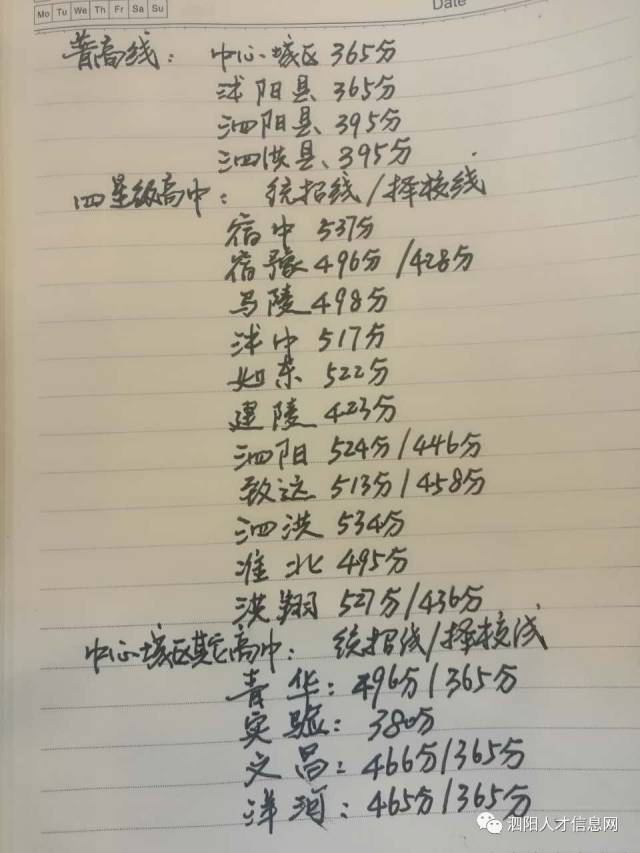 Mo Tu We Th Fr Sa Su
Date
普高线：中心城区 365分
沭阳县 365分
泗阳县、395分
泗洪县、395分
四星级高中：统招线/择校线
宿中 537分
宿豫 496分/428分
马陵 498分
沭中 517分
如东 522分
建陵 423分
泗阳 524分/446分
致远 513分/458分
泗洪 534分
淮北 495分
洪翔 527分/436分
中心城区其它高中：统招线/择校线
青华：496分/365分
实验：380分
文昌：466分/365分
洋河：465分/365分
泗阳人才信息网